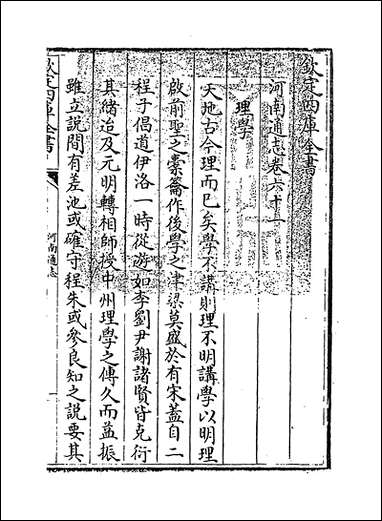 欽定四庫全書
河南通志卷六十一
理學
天地古今理而已矣學不講則理不明講學以明理
啟前聖之橐籥作後學之津梁莫盛於有宋蓋自二
程子倡道伊洛一時從遊如李劉尹謝諸賢皆克衍
其緒迨及元明轉相師授中州理學之傳久而益振
雖立說間有差池或確守程朱或參良知之說要其
欽定四庫全書
河南通志
一